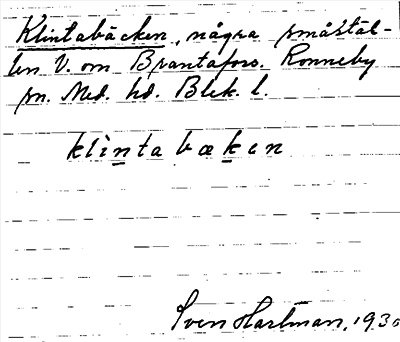 Klintabäcken, några småstäl-
len V. om Brantafors. Ronneby
sn. Med. hd. Blek. l.
klintabæken
Sven Hartman, 1930